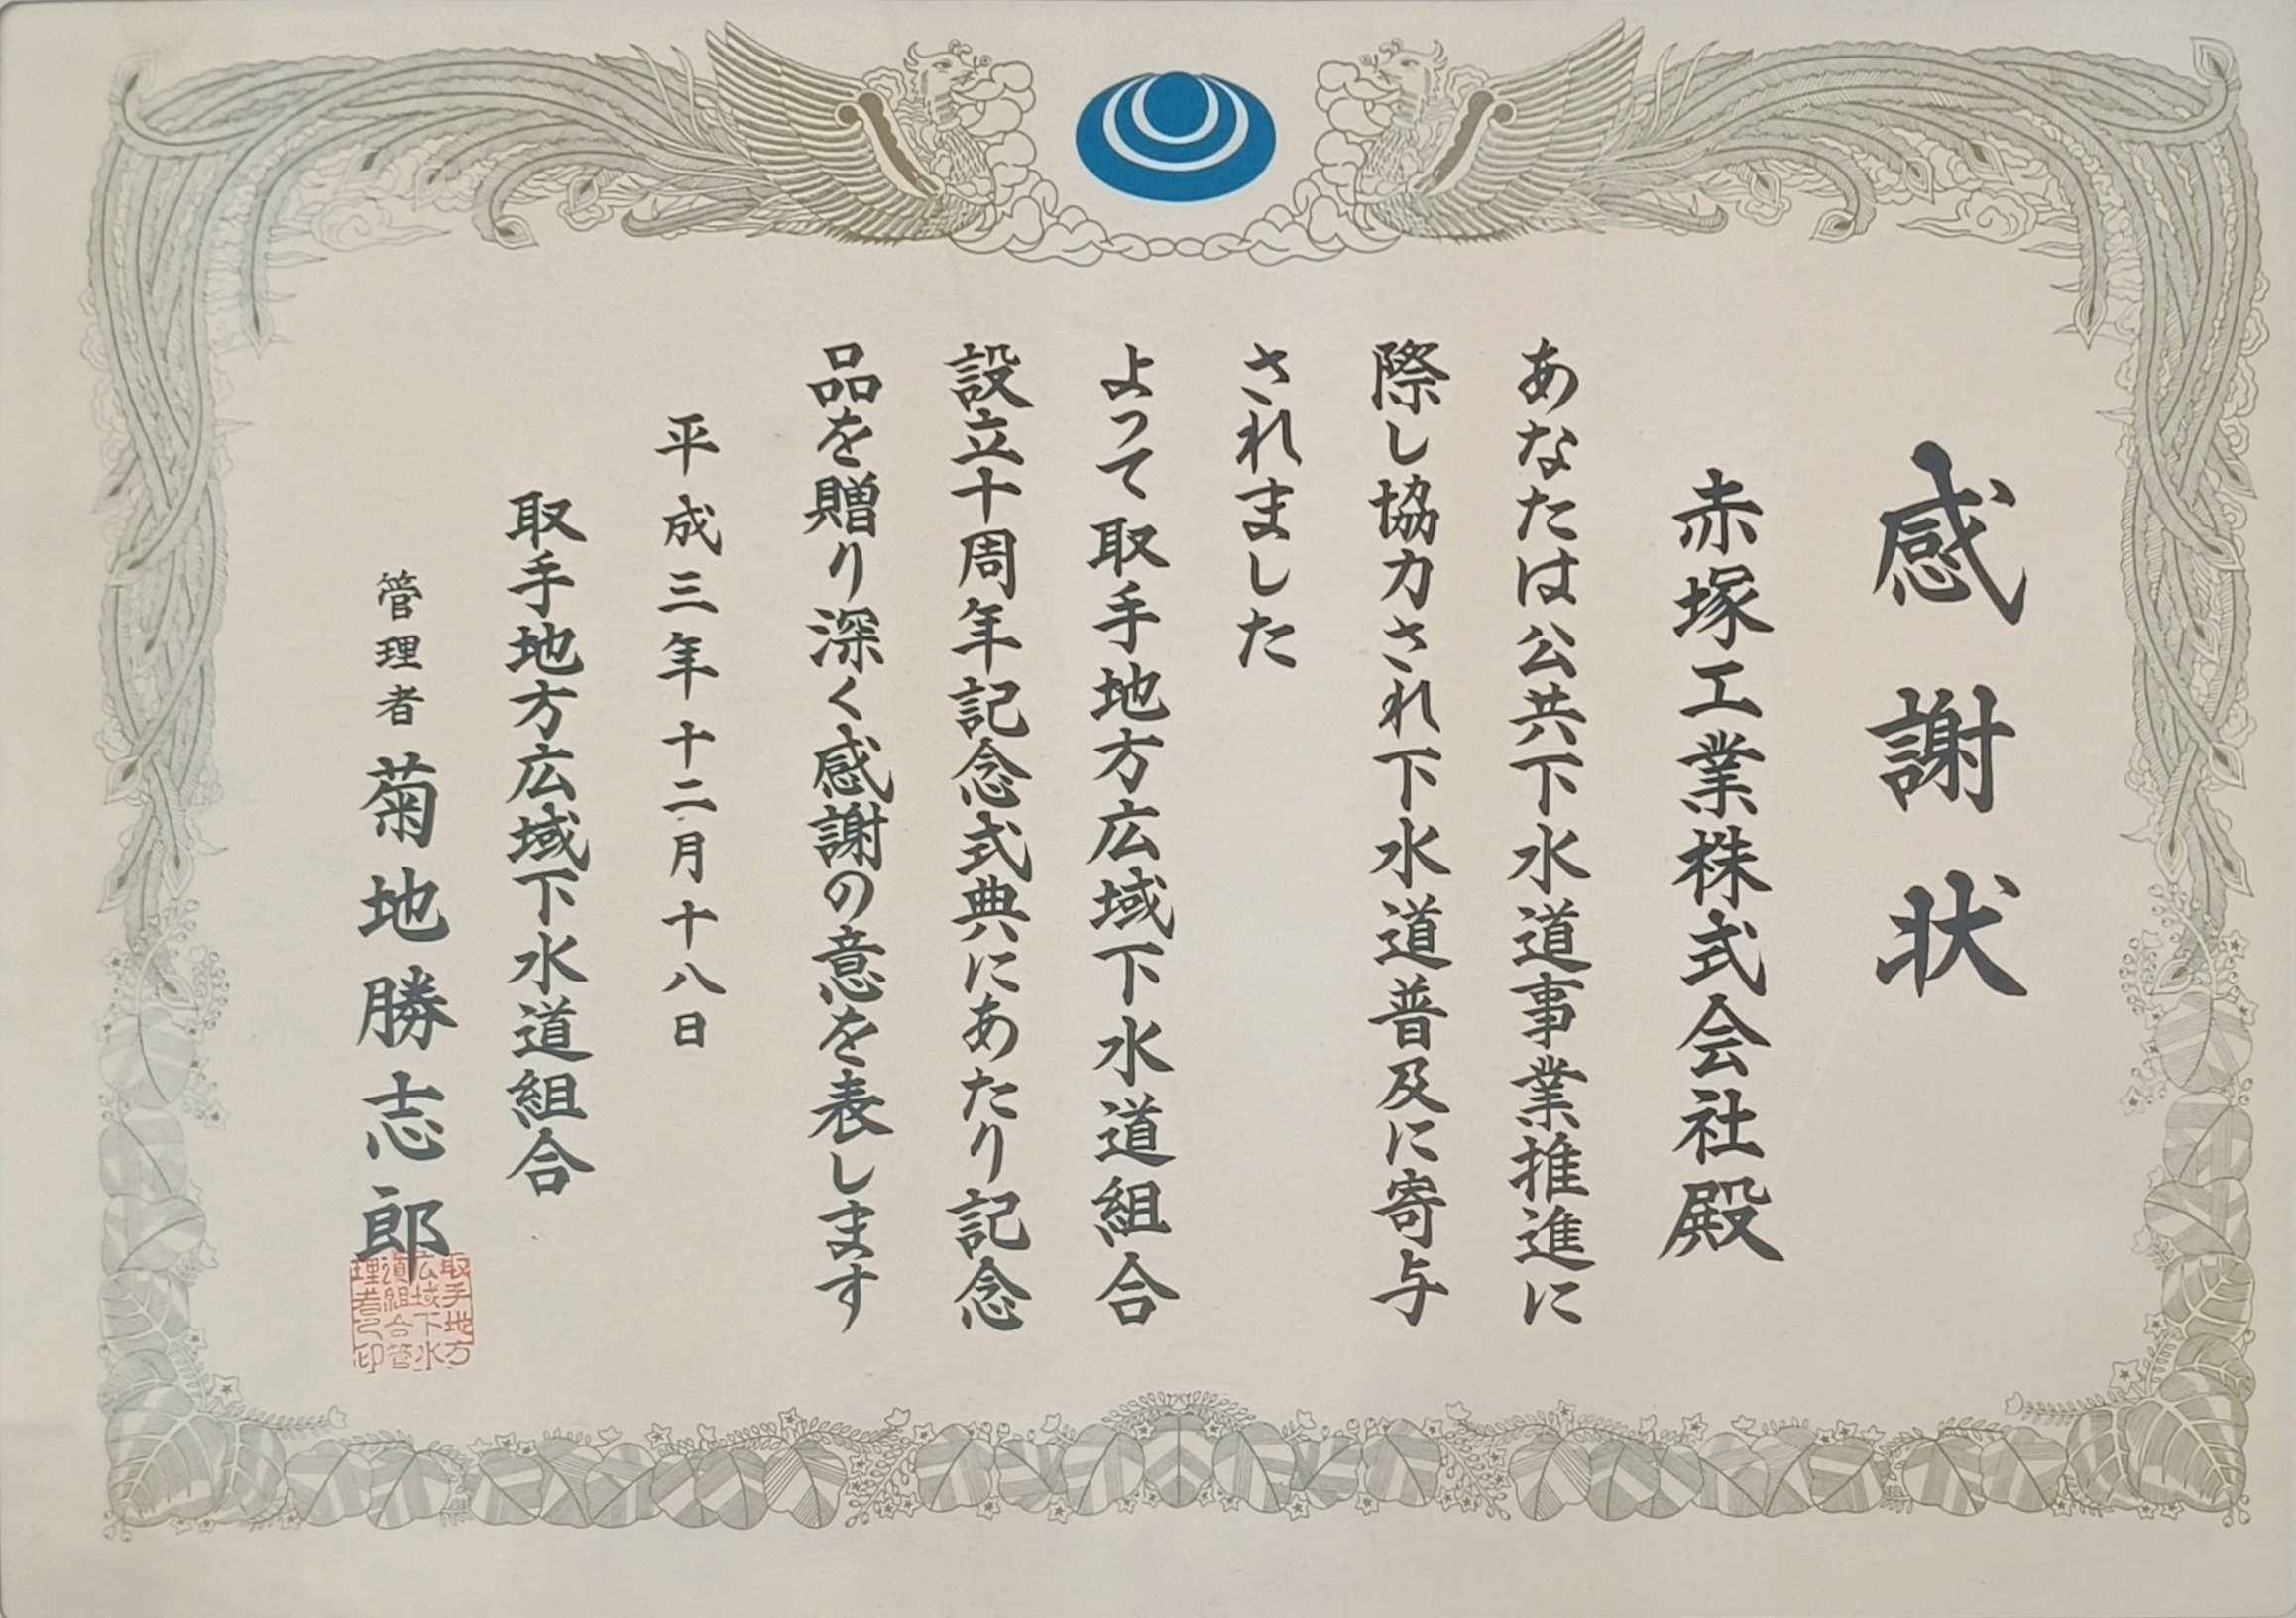 感謝状
赤塚工業株式会社殿
あなたは公共下水道事業推進に
際し協力され下水道普及に寄与
されました
よって取手地方広域下水道組合
設立十周年記念式典にあたり記念
品を贈り深く感謝の意を表します
平成三年十二月十八日
取手地方広域下水道組合
管理者 菊地勝志郎
取手地方
広域下水
道組合管
理者之印